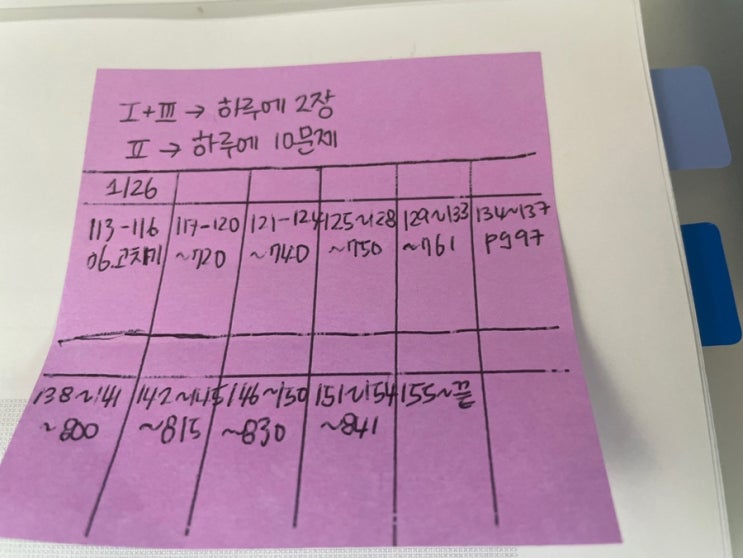 I+III → 하루에 2장
II → 하루에 10문제
1/26
113-116 117-120 121-124 125~128 129~133 134~137
06.고차미 ~720 ~740 ~750 ~761 pg97
138~141 142~145 146~150 151~154 155~끝
~800 ~815 ~830 ~841